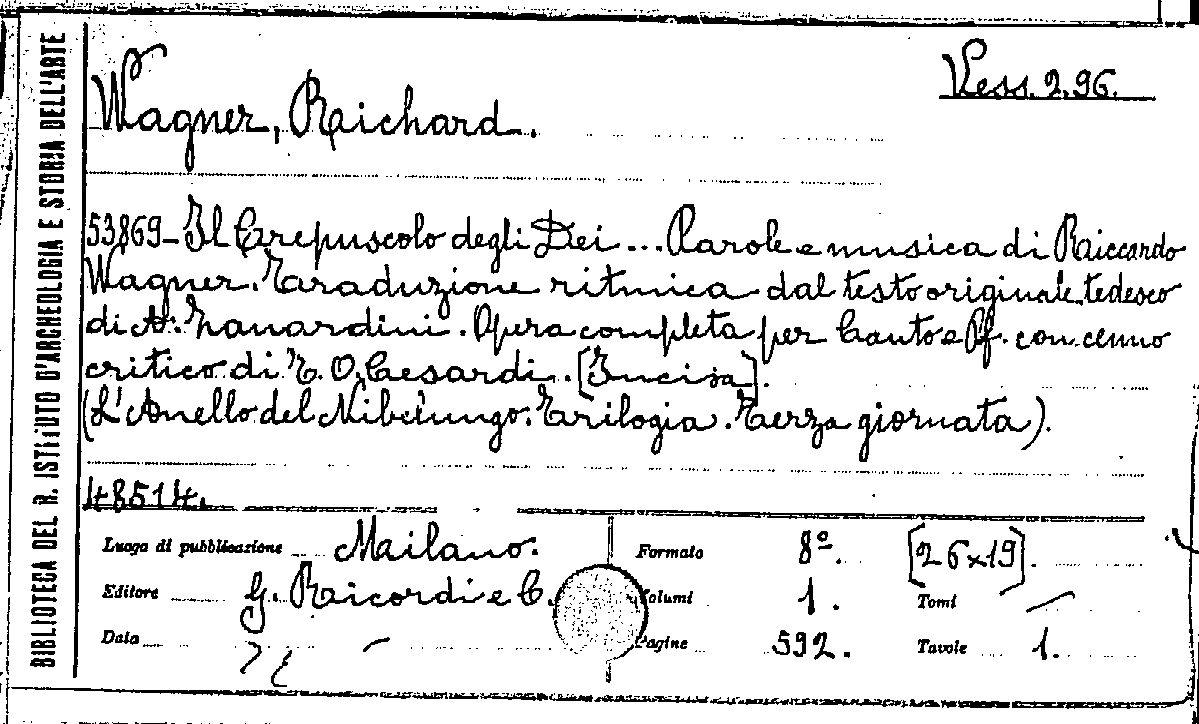 BIBLIOTECA DEL R. ISTITUTO D'ARCHEOLOGIA E STORIA DELL'ARTE
Vess. 2.96.
Wagner, Richard.
53869 - Il Crepuscolo degli Dei ... Parole e musica di Riccardo
Wagner. Traduzione ritmica dal testo originale tedesco
di A. Zanardini. Opera completa per Canto e Pf. con cenno
critico di T. O. Cesardi. [Incisa].
(L'Anello del Nibelungo. Trilogia. Terza giornata).
48514.
Luogo di pubblicazione Milano. Formato 8º. [26x19].
Editore G. Ricordi e C. Volumi 1. Tomi —
Data — Pagine 592. Tavole 1.